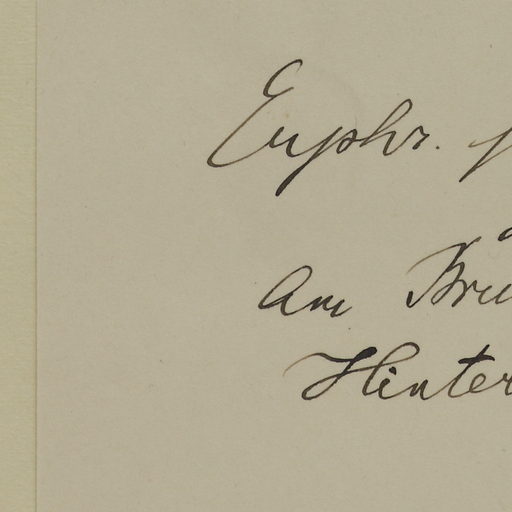 Euphr.
Am Bru
Hinter